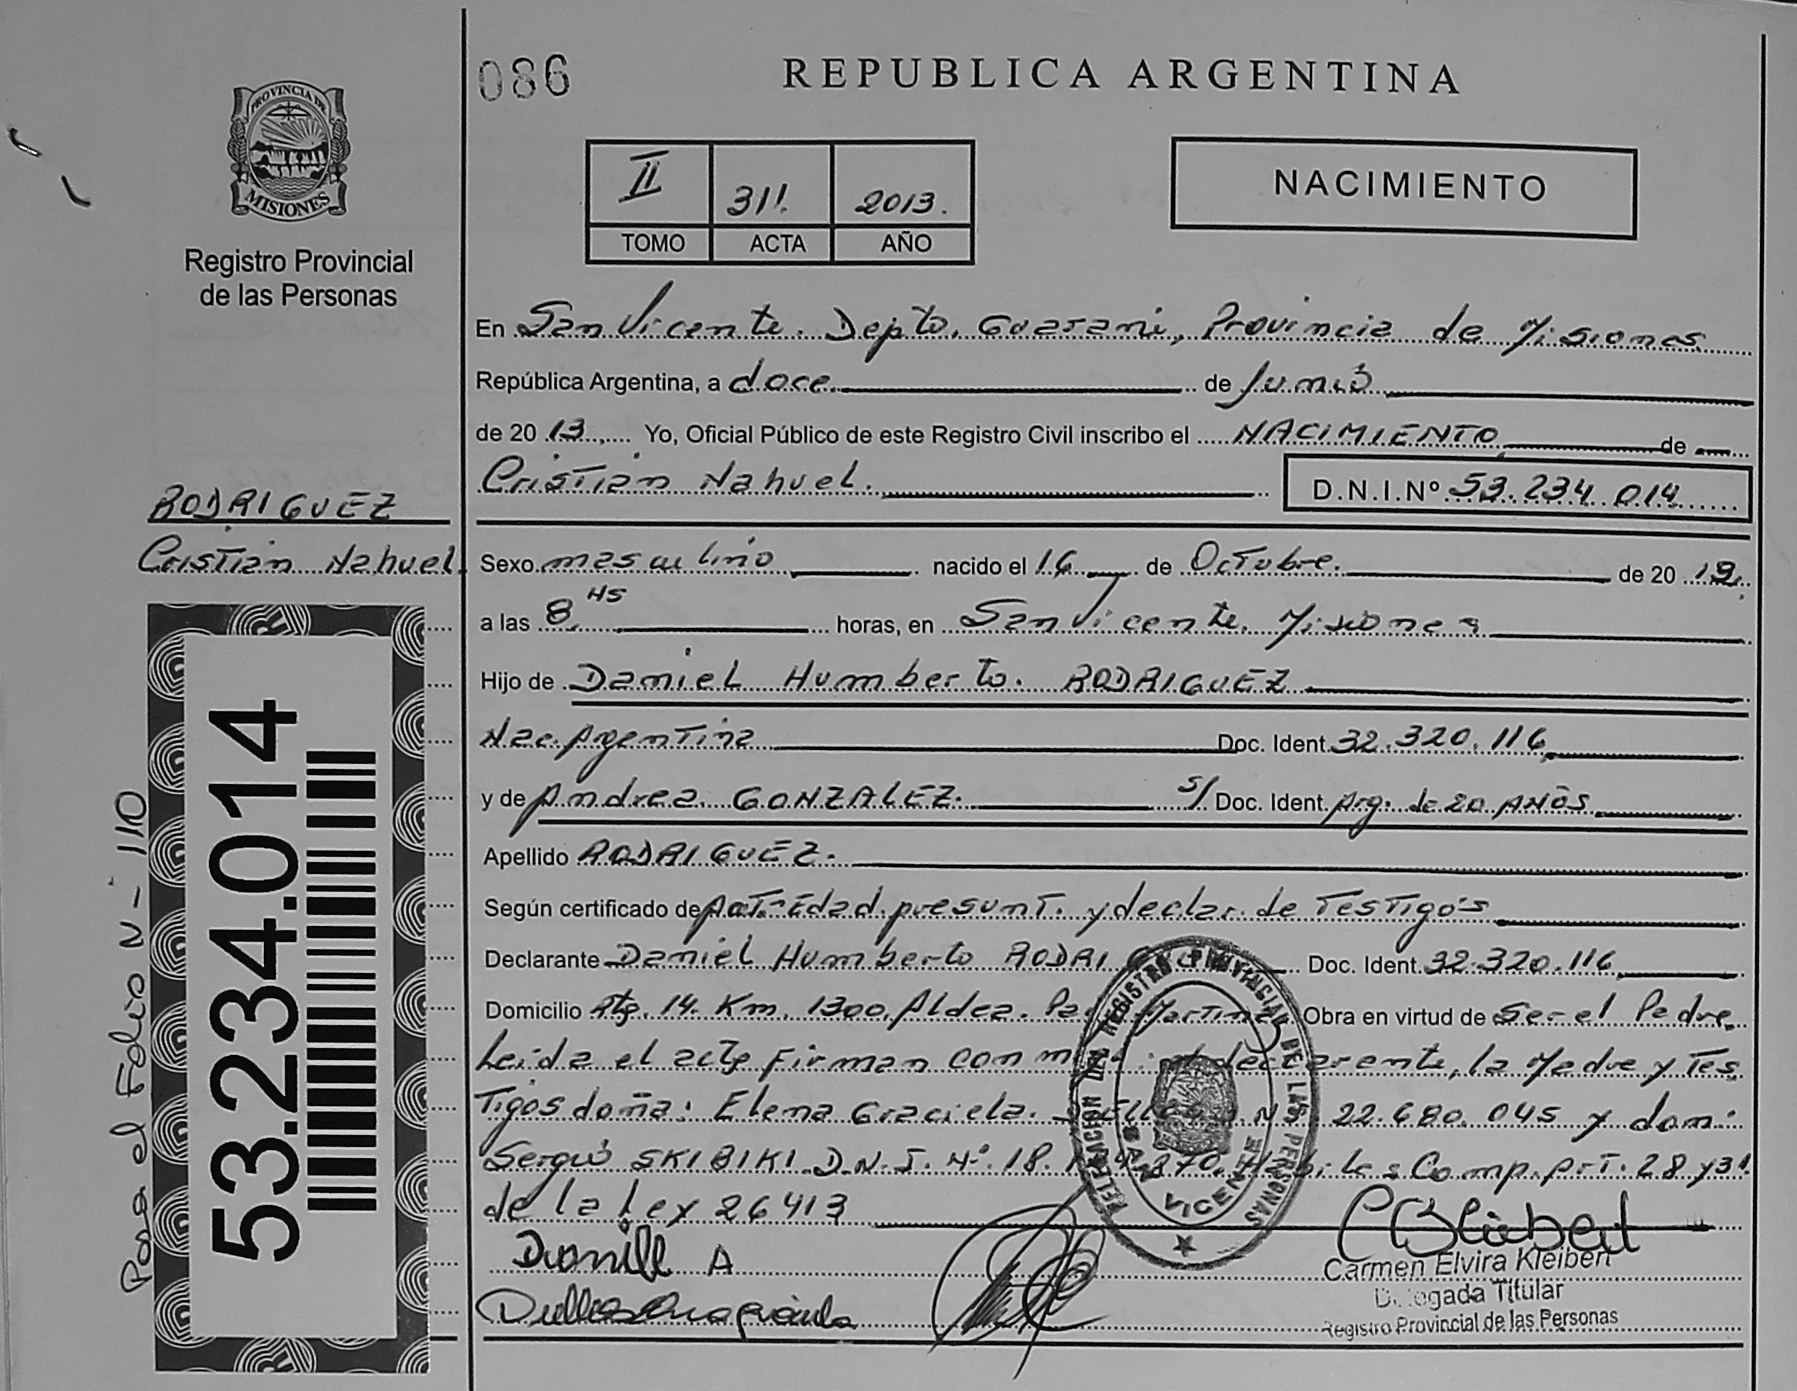 086
REPUBLICA ARGENTINA
PROVINCIA DE
MISIONES
Registro Provincial
de las Personas
II 311. 2013.
TOMO ACTA AÑO
NACIMIENTO
En San Vicente. Depto. Guarani, Provincia de Misiones
República Argentina, a doce de Junio
de 20 13 Yo, Oficial Público de este Registro Civil inscribo el NACIMIENTO de
Cristian Nahuel.
D.N.I.Nº 53.234.014
RODRIGUEZ
Cristian Nahuel
Sexo masculino nacido el 16 de Octubre. de 20 12.
a las 8 HS horas, en San Vicente. Misiones
Hijo de Daniel Humberto. RODRIGUEZ
Nac. Argentina Doc. Ident. 32.320.116
y de Andrea GONZALEZ. S/ Doc. Ident. Arg. de 20 AÑOS
Apellido RODRIGUEZ.
Según certificado de pat-Edad presunt. y declar. de Testigos
Declarante Daniel Humberto RODRI Doc. Ident. 32.320.116
Domicilio 14. Km. 1300. Aldea. Martinez Obra en virtud de Ser el Padre.
Leida el acta Firman con la Madre y Tes
Tigos doña: Elena Graciela. 22.680.045 y don:
Sergio SKIBIKI D.N.I. Nº. 18. 870. Comp. Art. 28 y 31
de la Ley 26413
DELEGACION DEL REGISTRO PROVINCIAL DE LAS PERSONAS
SAN VICENTE
Carmen Elvira Kleibert
Delegada Titular
Registro Provincial de las Personas
53.234.014
Pasa el Folio Nº 110